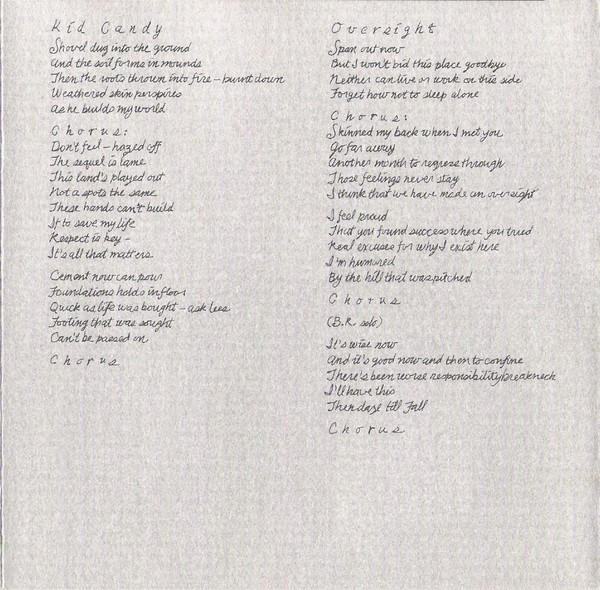 Kid Candy
Shovel dug into the ground
And the soil forms in mounds
Then the roots thrown into fire - burnt down
Weathered skin perspires
As he builds my world
Chorus:
Don't feel - hazed off
The sequel is lame
This land's played out
Not a spots the same
These hands can't build
It to save my life
Respect is key -
It's all that matters
Cement now can pour
Foundations holds in floor
Quick as life was bought - ask less
Footing that was sought
Can't be passed on
Chorus
Oversight
Span out now
But I won't bid this place goodbye
Neither can live or work on this side
Forget how not to sleep alone
Chorus:
Skinned my back when I met you
Go far away
Another month to regress through
Those feelings never stay
I think that we have made an oversight
I feel proud
That you found success where you tried
Real excuses for why I exist here
I'm humored
By the hill that was pitched
Chorus
(B.R. solo)
It's wise now
And it's good now and then to confine
There's been worse responsibility breakneck
I'll have this
Then daze till Fall
Chorus